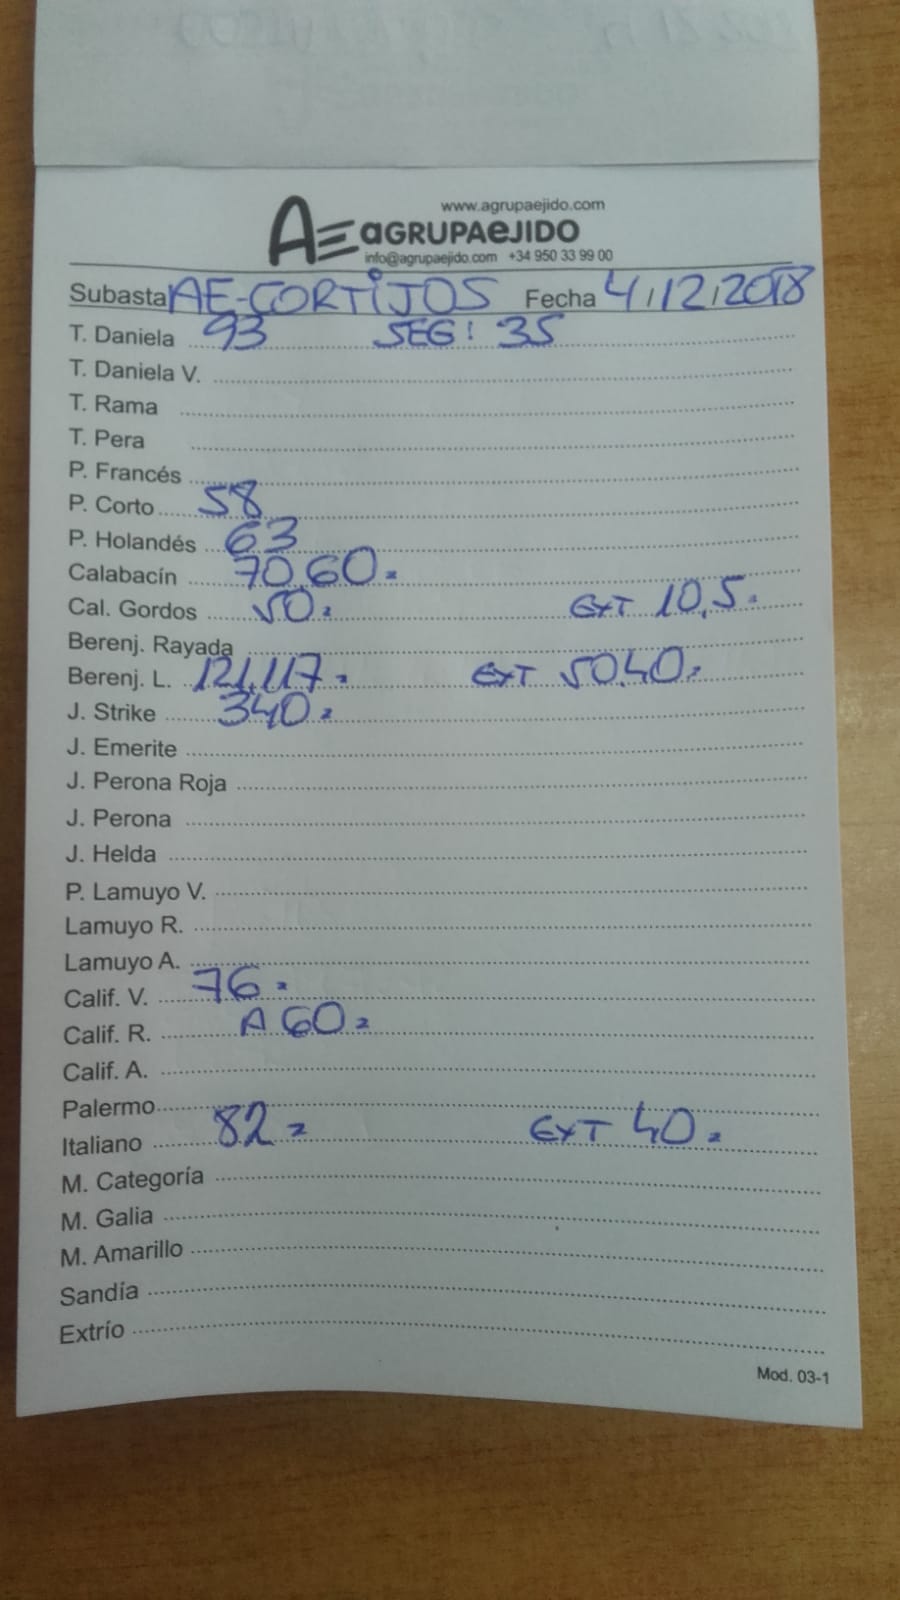 www.agrupaejido.com
AE aGRUPAeJIDO
info@agrupaejido.com +34 950 33 99 00
Subasta AE-CORTIJOS Fecha 4/12/2018
T. Daniela 93 SEG: 35
T. Daniela V.
T. Rama
T. Pera
P. Francés
P. Corto 58
P. Holandés 63
Calabacín 70,60=
Cal. Gordos 50= EXT 10,5=
Berenj. Rayada
Berenj. L. 121,117= EXT 50,40=
J. Strike 340=
J. Emerite
J. Perona Roja
J. Perona
J. Helda
P. Lamuyo V.
Lamuyo R.
Lamuyo A.
Calif. V. 76=
Calif. R. A 60=
Calif. A.
Palermo
Italiano 82= EXT 40=
M. Categoría
M. Galia
M. Amarillo
Sandía
Extrío
Mod. 03-1